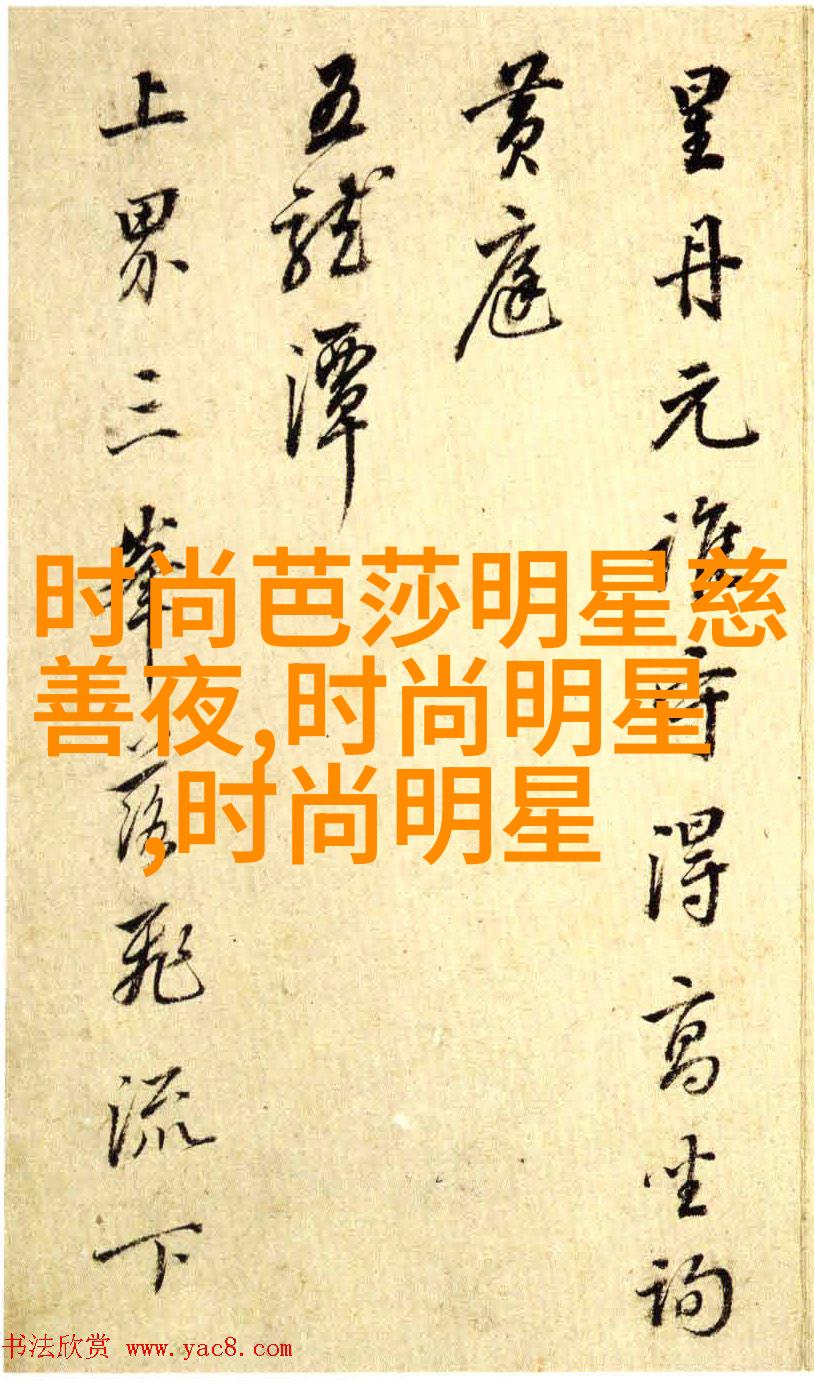 星丹元誰守得高坐詢
黄庭
五龍潭
上界三峯落飛流下
时尚芭莎明星慈
善夜,时尚明星
,时尚明星
书法欣赏 www.yac8.com